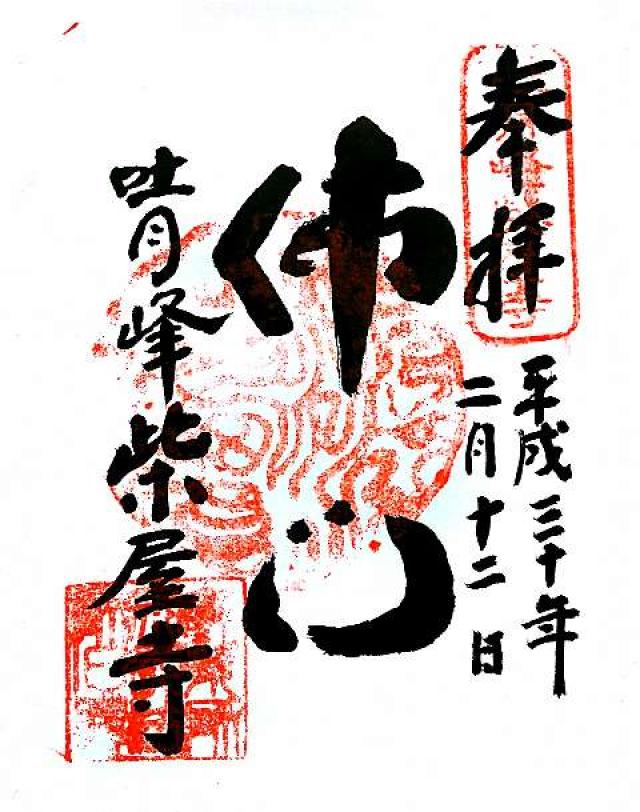 奉拝
平成三十年
二月十二日
佛心
吐月峰柴屋寺